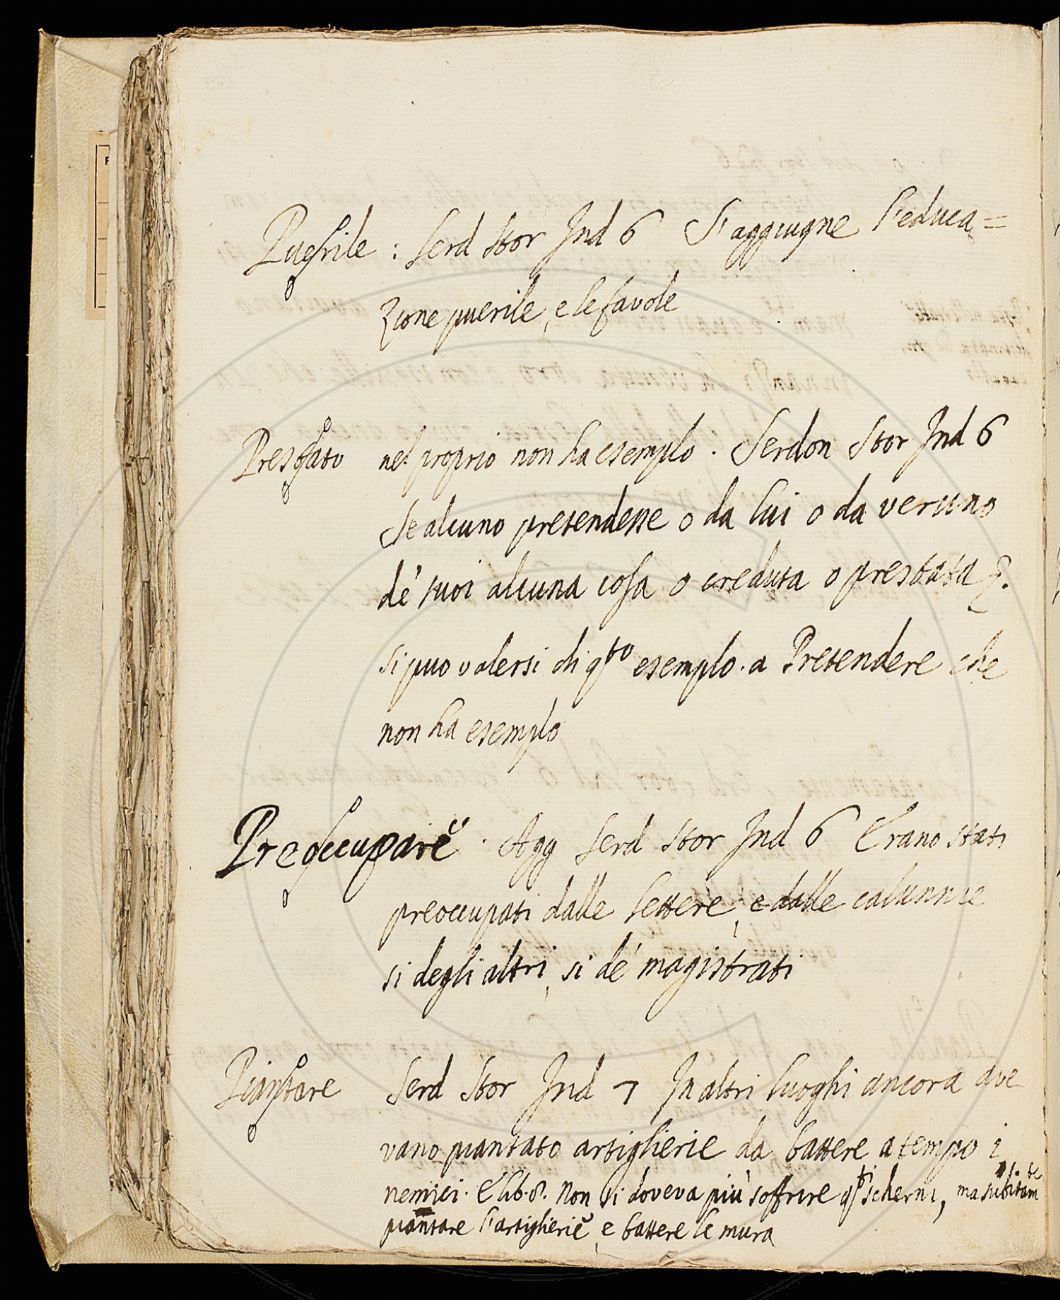 Puerile : Serd Stor Ind 6 S'aggiugne l'educa=
zione puerile, e le favole
Prestato nel proprio non ha esemplo. Serdon Stor Ind 6
Se alcuno pretendesse o da lui o da veruno
de' suoi alcuna cosa o creduta o prestata &.
si puo valersi di qto esemplo. a Pretendere che
non ha esemplo
Preoccupare. Agg Serd Stor Ind 6 Erano stati
preoccupati dalle lettere, e dalle calunnie
si degli altri, si de' magistrati
Piantare Serd Stor Ind 7 In altri luoghi ancora ave
vano piantato artiglierie da battere a tempo i
nemici. E lib. 8. Non si doveva più soffrire qti scherni, ma subitamte
piantare l'artiglierie, e battere le mura